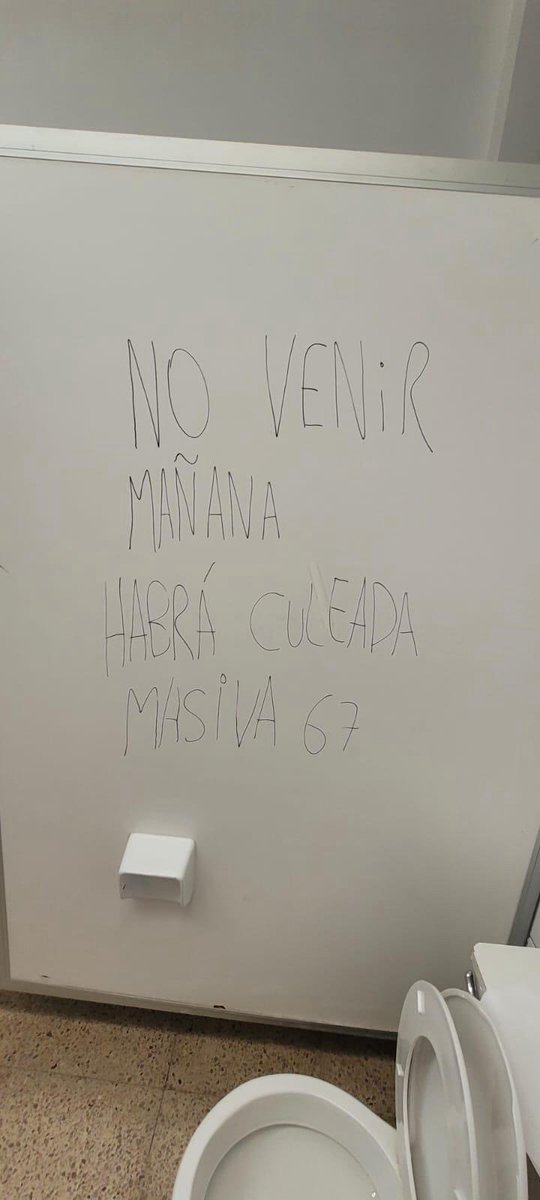 NO VENiR
MAÑANA
HABRÁ CULEADA
MASiVA 67